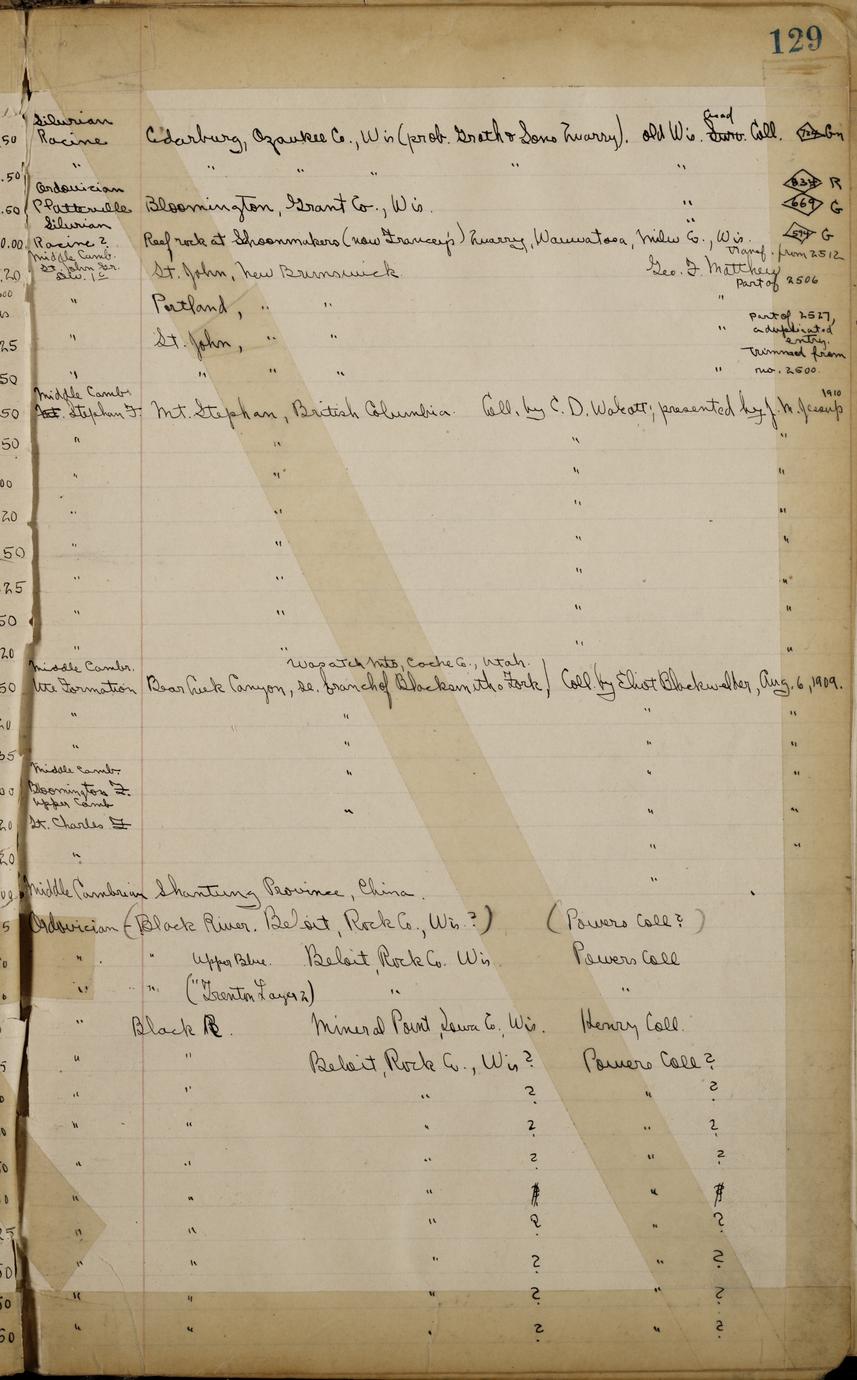 129
Silurian
50 Racine Cedarburg, Ozaukee Co., Wis (prob. Groth & Sons Quarry). old Wis. Acad Surv. Coll. Gn
.50 " " " " " "
Ordovician 834 R
.50 P Platteville Bloomington, Grant Co., Wis. " 669 G
Silurian "
0.00 Racine? Reef rock at Shoonmakers (now Francey's) Quarry, Wauwatosa, Milw Co., Wis. G
Middle Camb. Transf. from 2512
St. John Gr.
.20 Div. 1c St. John, New Brunswick Geo. F. Matthew
Part of 2506
" Portland, " " "
Part of 2527,
25 " St. John, " " " a duplicated
entry.
Trimmed from
50 " " " " " no. 2500.
Middle Camb. 1910
50 Mt. Stephan F. Mt. Stephan, British Columbia. Coll. by C. D. Walcott; presented by J. M. Jessup
50 " " " "
00 " " " "
20 " " " "
50 " " " "
25 " " " "
50 " " " "
20 " " " "
Middle Cambr. Wasatch Mts, Cache Co., Utah.
50 Ute Formation Bear Creek Canyon, se. branch of Blacksmiths Fork, Coll. by Eliot Blackwelder, Aug. 6, 1909.
20 " " " "
35 " " " "
Middle Camb.
Bloomington F. " " "
Upper Camb
20 St. Charles F " " "
20 " " "
Middle Cambrian Shantung Province, China. "
5 Ordovician (Black River. Beloit, Rock Co., Wis?) (Powers Coll?)
0 " " Upper Blue. Beloit, Rock Co. Wis Powers Coll
" " ("Trenton Layer 2) " "
" Black R. Mineral Point, Iowa Co., Wis. Henry Coll.
5 " " Beloit, Rock Co., Wis? Powers Coll?
0 " " " ? " ?
0 " " " ? " ?
0 " " " ? " ?
0 " " " " 
25 " " " ? " ?
50 " " " ? " ?
50 " " " ? " ?
50 " " " ? " ?